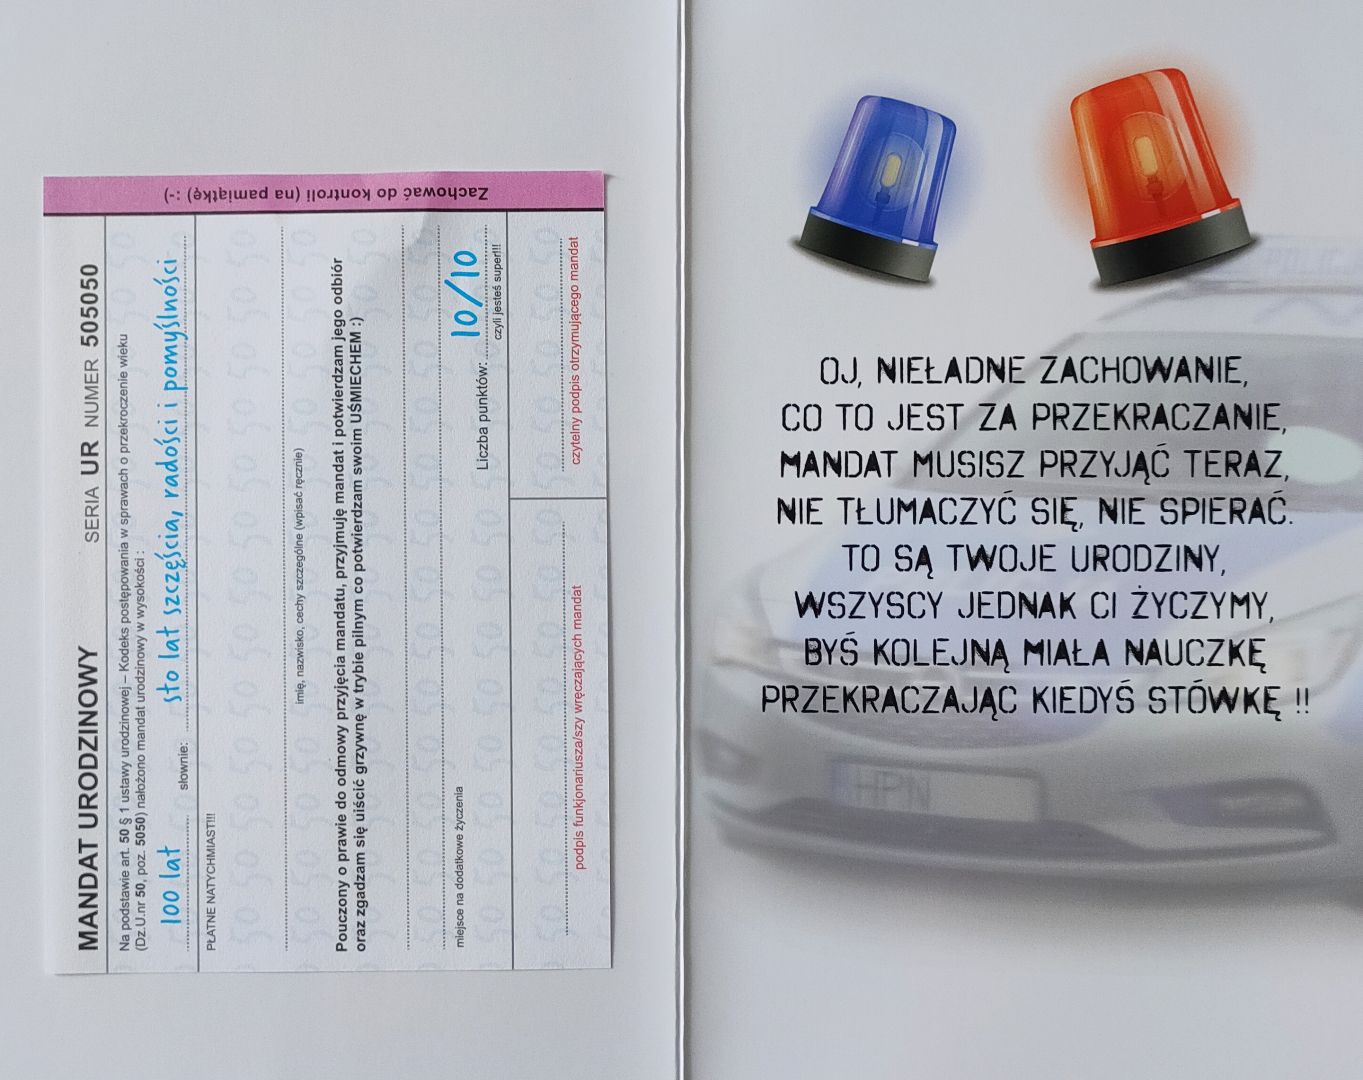 Zachować do kontroli (na pamiątkę) :-)
MANDAT URODZINOWY
SERIA UR NUMER 505050
Na podstawie art. 50 § 1 ustawy urodzinowej – Kodeks postępowania w sprawach o przekroczenie wieku
(Dz.U.nr 50, poz. 5050) nałożono mandat urodzinowy w wysokości :
100 lat słownie: sto lat szczęścia, radości i pomyślności
PŁATNE NATYCHMIAST!!!
imię, nazwisko, cechy szczególne (wpisać ręcznie)
Pouczony o prawie do odmowy przyjęcia mandatu, przyjmuję mandat i potwierdzam jego odbiór
oraz zgadzam się uiścić grzywnę w trybie pilnym co potwierdzam swoim UŚMIECHEM :)
miejsce na dodatkowe życzenia
Liczba punktów: 10/10
czyli jesteś super!!!
podpis funkjonariusza/szy wręczających mandat
czytelny podpis otrzymującego mandat
OJ, NIEŁADNE ZACHOWANIE,
CO TO JEST ZA PRZEKRACZANIE,
MANDAT MUSISZ PRZYJĄĆ TERAZ,
NIE TŁUMACZYĆ SIĘ, NIE SPIERAĆ.
TO SĄ TWOJE URODZINY,
WSZYSCY JEDNAK CI ŻYCZYMY,
BYŚ KOLEJNĄ MIAŁA NAUCZKĘ
PRZEKRACZAJĄC KIEDYŚ STÓWKĘ !!
HPN